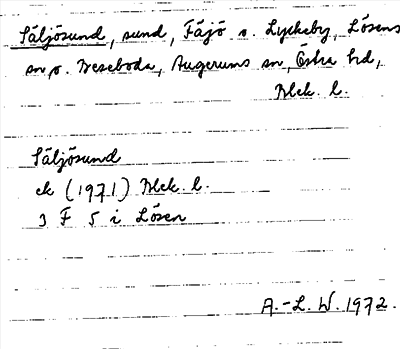 Säljösund, sund, Fäjö o. Lyckeby, Lösens
sn, o. Vereboda, Augerums sn, Östra hd,
Blek. l.
Säljösund
ek (1971) Blek. l.
3 F 5 i Lösen
A.-L. W. 1972.